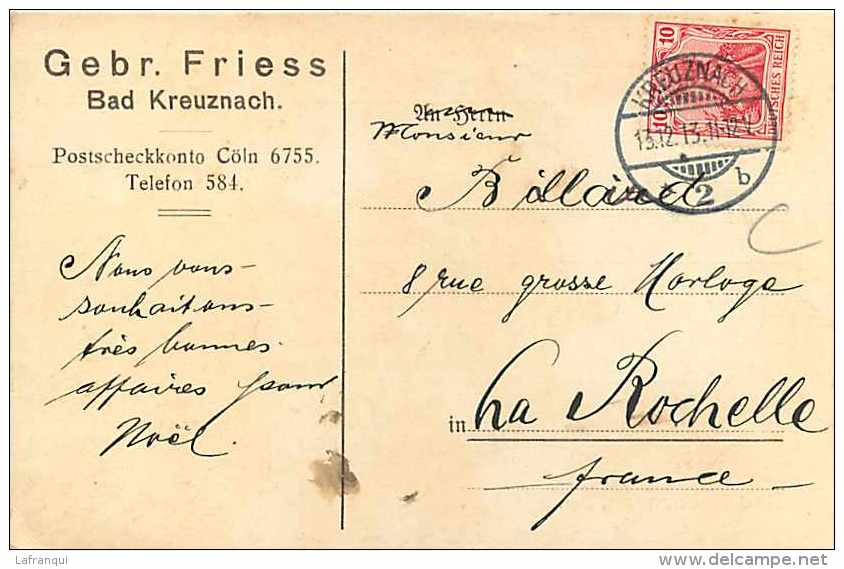 Gebr. Friess
Bad Kreuznach.
Postscheckkonto Cöln 6755.
Telefon 584.
Nous vous
souhaitons
très bonnes
affaires pour
Noël.
10
10
DEUTSCHES REICH
KREUZNACH
13.12.13.11-12V.
2 b
An Herrn
Monsieur
Billard
8 rue grosse Horloge
in La Rochelle
france
Lafranqui
www.delcampe.net